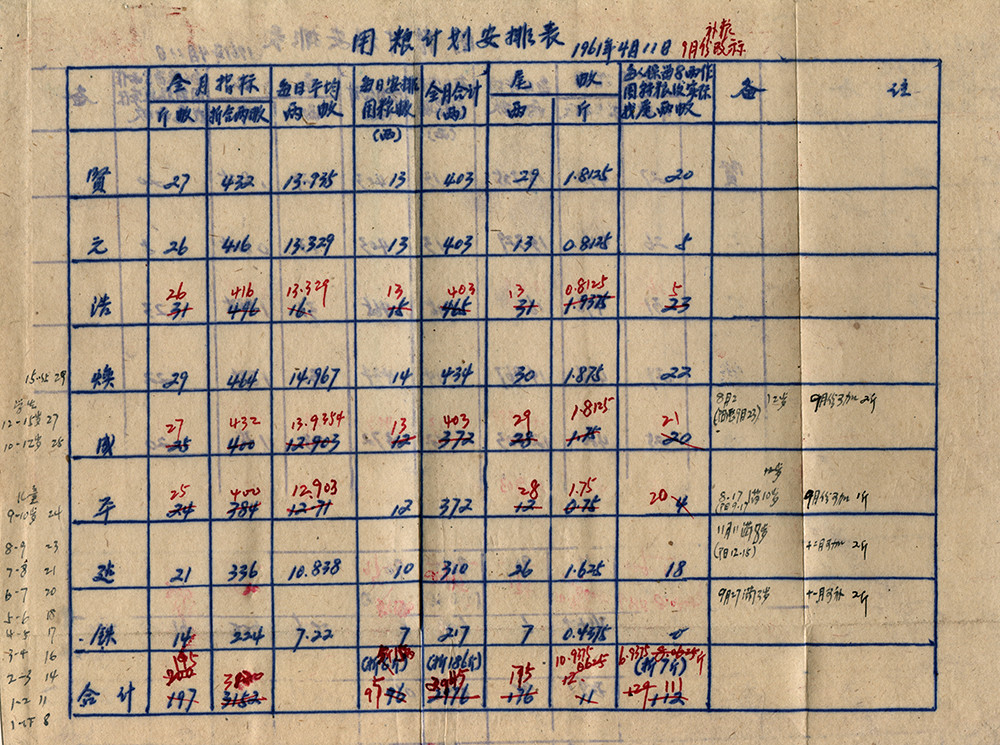 用粮计划安排表 1961年4月11日 补粮
9月份改标
全月指标 每日平均两数 每日安排用粮数(两) 全月合计(两) 尾数 备註
斤数 折合两数 两 斤
賢 27 432 13.935 13 403 29 1.8125 20
元 26 416 13.329 13 403 13 0.8125 5
26 416 13.329 13 403 13 0.8125 5
浩 31 496 16. 15 465 31 1.9375 23
焕 29 464 14.967 14 434 30 1.875 22
27 432 13.9354 13 403 29 1.8125 21
咸 25 400 12.903 12 372 28 1.75 20
8月2 12岁 9月份可加2斤
25 400 12.903 28 1.75 20
平 24 384 12.71 12 372 12 0.75 4
12岁
8.17 满10岁 9月份可加1斤
21 336 10.838 10 310 26 1.625 18
11月11满8岁 十二月可加2斤
(旧12.15)
铁 14 224 7.22 7 217 7 0.4375 0
9月27满3岁 十一月可补2斤
195 (折6斤) (折186斤) 175 10.9375 6.9375 (折7斤)
合计 197 3152 96 2976 176 11 112
15以上 29
学生
12-15岁 27
10-12岁 25
儿童
9-10岁 24
8-9 23
7-8 21
6-7 20
5-6 18
4-5 17
3-4 16
2-3 14
1-2 11
1以下 8